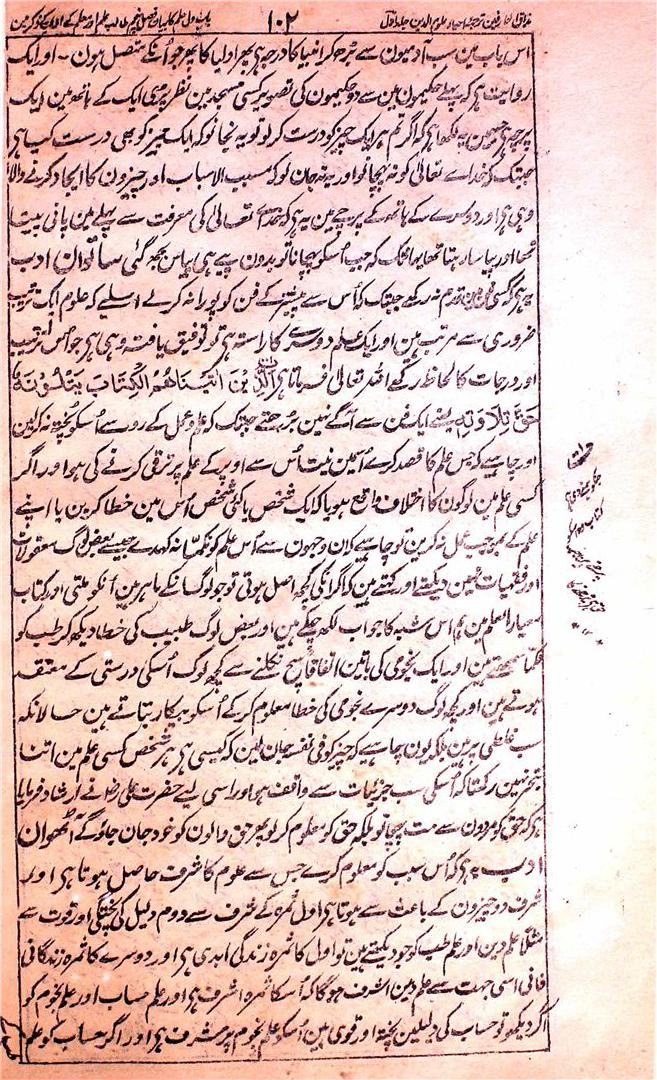 مذاق العارفین ترجمہ احیاء علوم الدین جلد اول ۱۰۲ باب اول علم کا بیان فصل پنجم طالب علم اور معلم کے آداب کے ذکر مین
اس باب مین سب آدمیون سے بڑھ کر انبیا کا درجہ ہی پھر اولیا کا پھر جو اُنکے متصل ہون ۔ اور ایک
روایت ہی کہ پہلے حکیمون مین سے دو حکیمون کی تصویر کسی مسجد مین نظر پڑی ایک کے ہاتھ مین ایک
پرچہ ہی جسمین یہ لکھا ہی کہ اگر تم ہر ایک چیز کو درست کر لو تو یہ نجانو کہ ایک چیز کو بھی درست کیا ہی
جبتک کہ خداے تعالیٰ کو نہ پہچانو اور یہ نہ جان لو کہ مسبب الاسباب اور چیزون کا ایجاد کرنے والا
وہی ہی اور دوسرے کے ہاتھ کے پرچے مین یہ ہی کہ خداے تعالیٰ کی معرفت سے پہلے مین پانی پیتا
تھا اور پیاسا رہتا تھا یہانتک کہ جب اُسکو پہچانا تو بدون پیے ہی پیاس بجھ گئی ساتوان ادب
یہ ہی کہ کسی فن مین قدم نہ رکھے جبتک کہ اُس سے پیشتر کے فن کو پورا نہ کر لے اسلیے کہ علوم ایک ترتیب
ضروری سے مرتب ہین اور ایک علم دوسرے کا راستہ ہی تو توفیق یافتہ وہی ہی جو اُس ترتیب
اور درجات کا لحاظ رکھے اللہ تعالیٰ فرماتا ہی الَّذِیْنَ اٰتَیْنَاهُمُ الْكِتَابَ یَتْلُوْنَهٗ
حَقَّ تِلَاوَتِهٖ یعنے ایک فن سے آگے نہین بڑھتے جبتک کہ علم و عمل کے رو سے اُسکو پختہ نہ کر لین
اور چاہیے کہ جس علم کا قصد کرے اُسمین نیت اُس سے اوپر کے علم پر ترقی کرنے کی ہو اور اگر
کسی علم مین لوگون کا اختلاف واقع ہو یا کہ ایک شخص یا کئی شخص اُس مین خطا کرین یا اپنے
علم کے بموجب عمل نہ کرین تو چاہیے کہ ان وجہون سے اُس علم کو نکما نہ کہدے جیسے بعض لوگ معقولات
اور فقہیات نہین دیکھتے اور کہتے ہین کہ اگر انکی کچھ اصل ہوتی تو جو لوگ انکے ماہر ہین اُنکو ملتی اور کتاب
معیار العلم مین ہم اس شبہ کا جواب لکھ چکے ہین اور بعض لوگ طبیب کی خطا دیکھ کر طب کو
نکما سمجھتے ہین اور ایک نجومی کی باتین اتفاقاً سچ نکلنے سے کچھ لوگ اُسکی درستی کے معتقد
ہوتے ہین اور کچھ لوگ دوسرے نجومی کی خطا معلوم کر کے اُسکو بیکار بتاتے ہین حالانکہ
سب غلطی پر ہین بلکہ یون چاہیے کہ چیز کو فی نفسہ جان لین کہ کیسی ہی ہر شخص کسی علم مین اتنا
تبحر نہین رکھتا کہ اُسکی سب جزئیات سے واقف ہو اور اسی لیے حضرت علی رضا نے ارشاد فرمایا
ہی کہ حق کو مردون سے مت پہچانو بلکہ حق کو معلوم کر لو پھر حق والون کو خود جان جاؤگے آٹھوان
ادب یہ ہی کہ اُس سبب کو معلوم کرے جس سے علوم کا شرف حاصل ہوتا ہی اور
شرف دو چیزون کے باعث سے ہوتا ہی اول ثمرہ کے شرف سے دوم دلیل کی پختگی اور قوت سے
مثلاً علم دین اور علم طب کو جو دیکھتے ہین تو اول کا ثمرہ زندگی ابدی ہی اور دوسرے کا ثمرہ زندگانی
فانی اسی جہت سے علم دین اشرف ہوگا کہ اُسکا ثمرہ اشرف ہی اور علم حساب اور علم نجوم کو
اگر دیکھو تو حساب کی دلیلین پختہ اور قوی ہین اُسکو علم نجوم پر شرف ہی اور اگر حساب کو علم